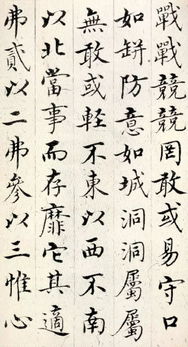 戰戰競競罔敢或易守口
如缾防意如城洞洞屬屬
無敢或輕不東以西不南
以北當事而存靡它其適
弗貳以二弗參以三惟心